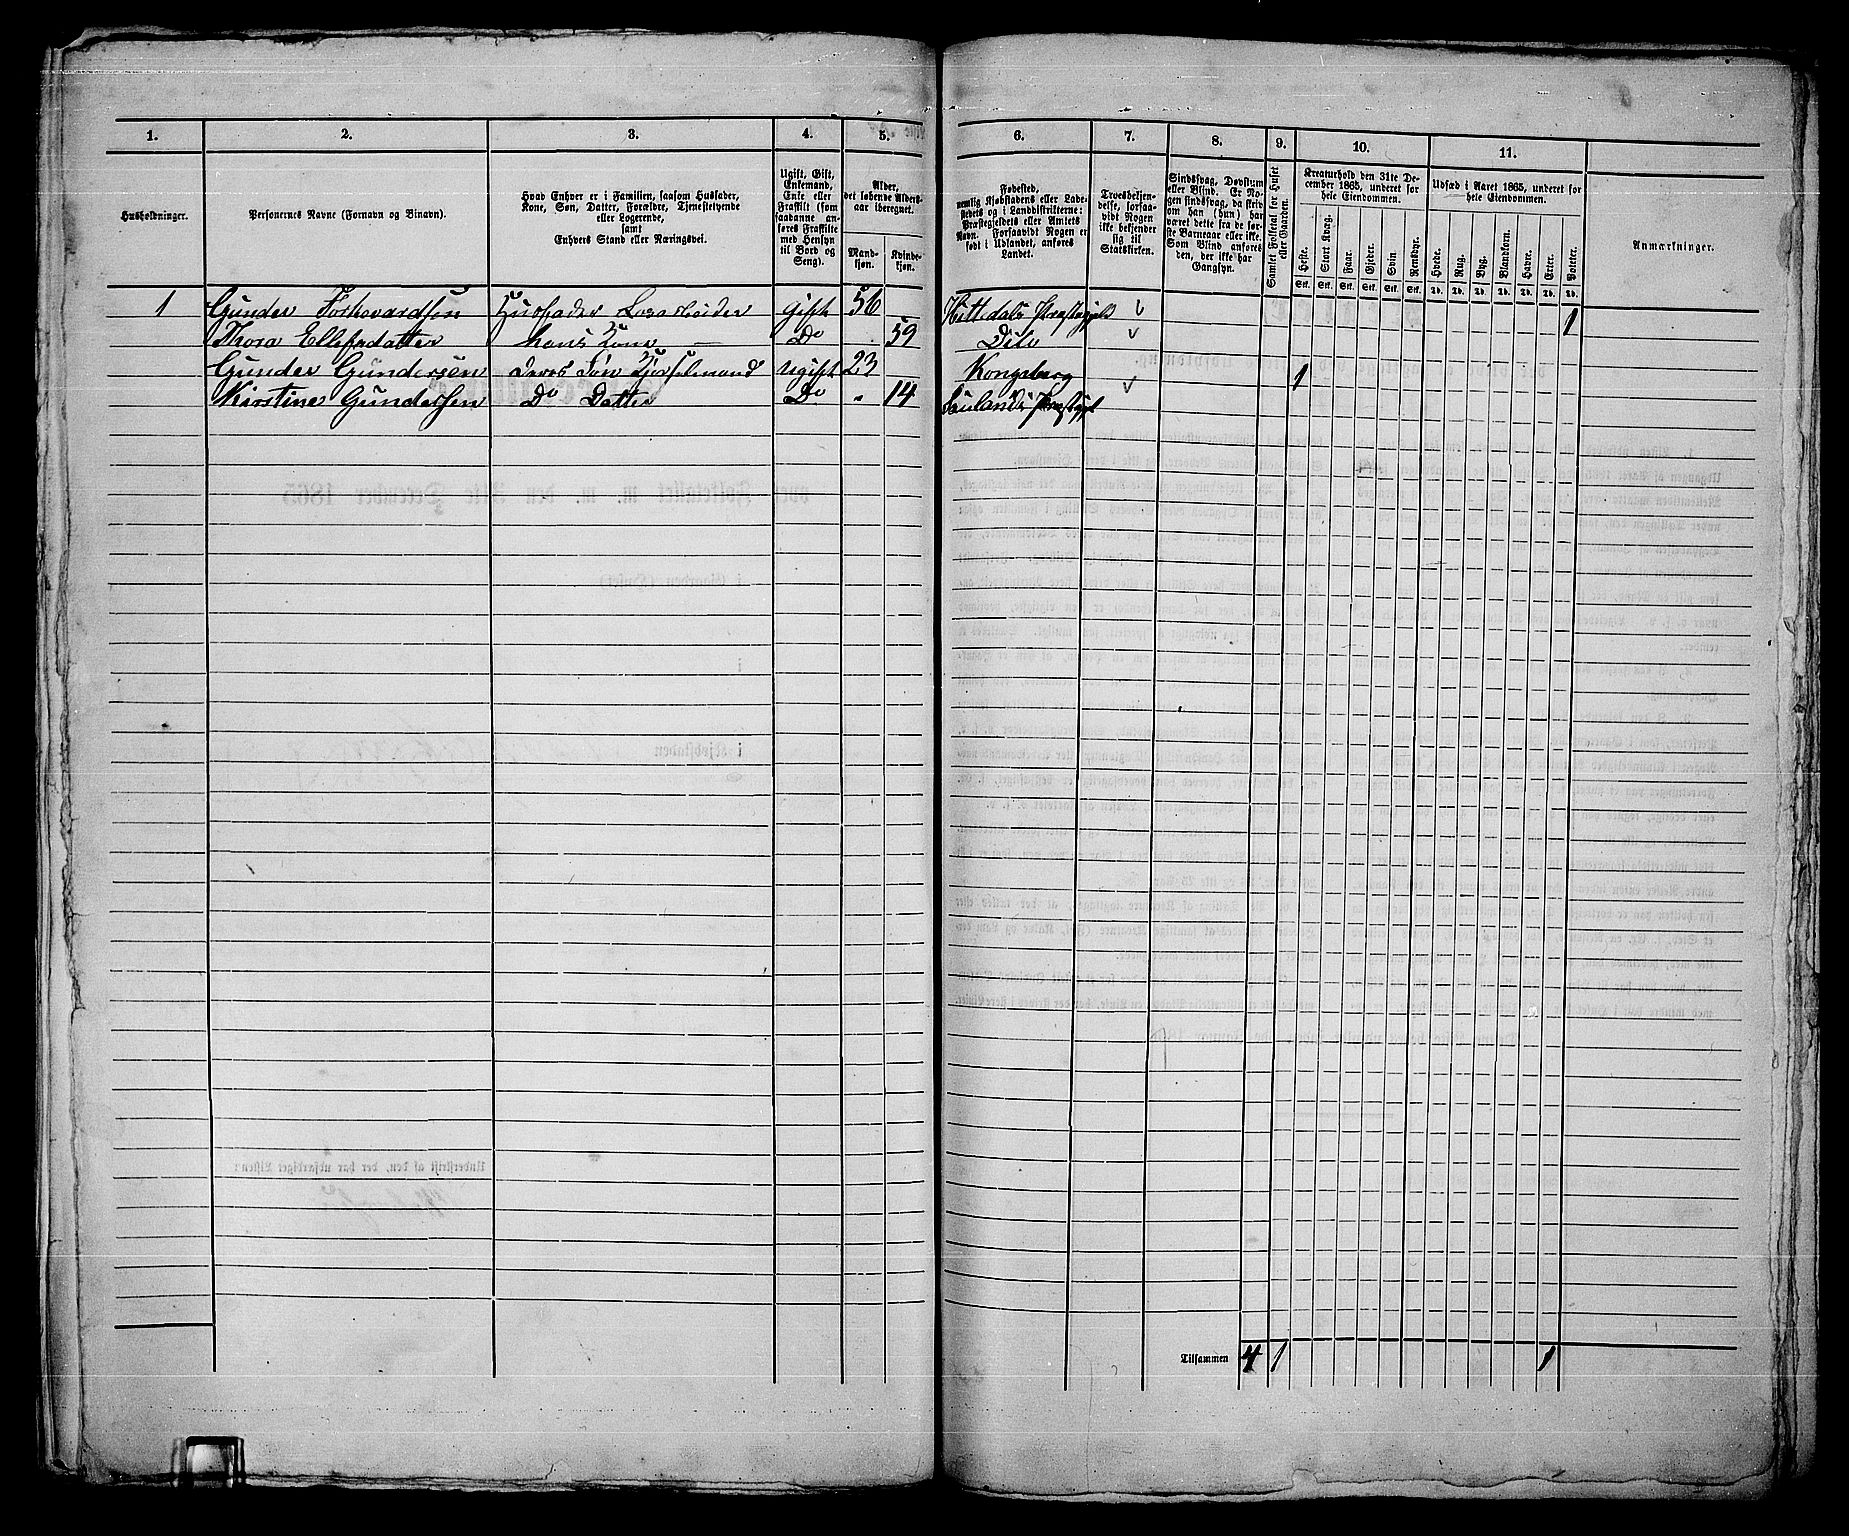 1. 2. 3. 4. 5. 6. 7. 8. 9. 10. 11.
Husholdninger.
Personernes Navne (Fornavn og Binavn).
Hvad Enhver er i Familien, saasom Husfader,
Kone, Søn, Datter, Forældre, Tjenestetyende
eller Logerende,
samt
Enhvers Stand eller Næringsvei.
Ugift, Gift,
Enkemand,
Enke eller
Fraskilt (som
saadanne an-
føres Fraskilte
med Hensyn
til Bord og
Seng).
Alder,
det løbende Alders-
aar iberegnet.
Mand-
kjøn.
Kvinde-
kjøn.
Fødested,
nemlig Kjøbstadens eller Lade-
stedets og i Landdistrikterne:
Præstegjeldets eller Amtets
Navn. Forsaavidt Nogen er
født i Udlandet, anføres
Landet.
Troesbekjen-
delse, forsaa-
vidt Nogen
ikke bekjender
sig til
Statskirken.
Sindssvag, Døvstum
eller Blind. Er No-
gen sindssvag, da skriv
om han (hun) har
været dette fra de før-
ste Barneaar eller ikke.
Som Blind anføres
den, der ikke har
Gangsyn.
Samlet Folketal for Huset
eller Gaarden.
Kreaturhold den 31te De-
cember 1865, underet for
hele Eiendommen.
Heste. Stort Kvæg. Faar. Gjeder. Svin. Rensdyr.
Stk. Stk. Stk. Stk. Stk. Stk.
Udsæd i Aaret 1865, underet for
hele Eiendommen.
Hvede. Rug. Byg. Blandkorn. Havre. Erter. Poteter.
Td. Td. Td. Td. Td. Td. Td.
Anmærkninger.
1 Gunder Torkevardsen Husfader Gift 56 Hittedals Præstegjeld 1
Thora Ellefsdatter hans Kone — Do 59 Dito
Gunder Gundersen deres Søn Kjørselsmand ugift 23 Kongsberg 1
Kirstine Gundersen Do Datter Do " 14 Saulands Præstgjel
Tilsammen 4 1 1